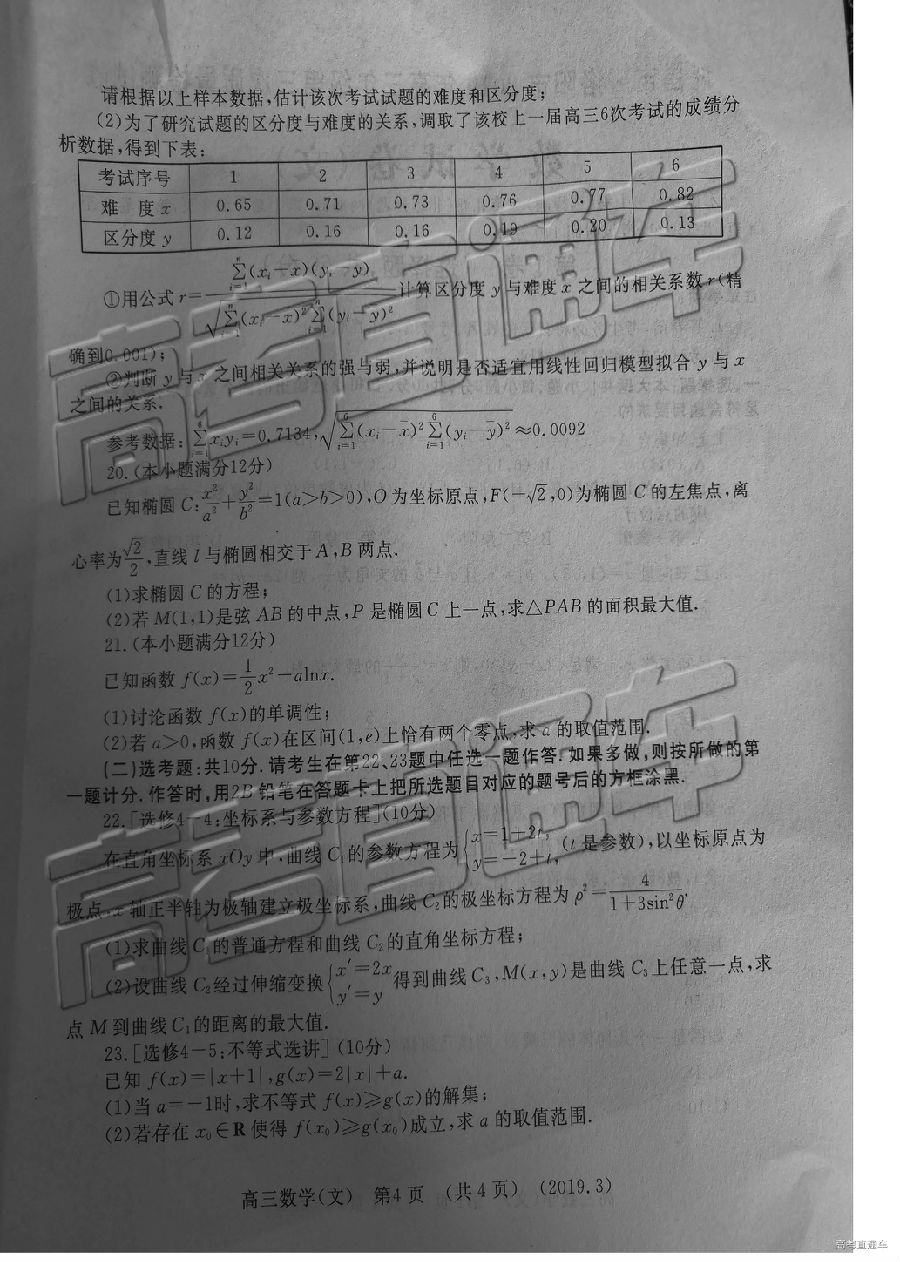 请根据以上样本数据,估计该次考试试题的难度和区分度;
(2)为了研究试题的区分度与难度的关系,调取了该校上一届高三6次考试的成绩分
析数据,得到下表:
考试序号 1 2 3 4 5 6
难 度 x 0.65 0.71 0.73 0.76 0.77 0.82
区分度 y 0.12 0.16 0.16 0.19 0.20 0.13
①用公式 r=\frac{\sum_{i=1}^{n}(x_i-\overline{x})(y_i-\overline{y})}{\sqrt{\sum_{i=1}^{n}(x_i-\overline{x})^2\sum_{i=1}^{n}(y_i-\overline{y})^2}}计算区分度 y 与难度 x 之间的相关系数 r(精
确到0.001);
②判断 y 与 x 之间相关关系的强与弱,并说明是否适宜用线性回归模型拟合 y 与 x
之间的关系.
参考数据: \sum_{i=1}^{6}x_iy_i=0.7134,\sqrt{\sum_{i=1}^{6}(x_i-\overline{x})^2\sum_{i=1}^{6}(y_i-\overline{y})^2}≈0.0092
20.(本小题满分12分)
已知椭圆 C:\frac{x^2}{a^2}+\frac{y^2}{b^2}=1(a>b>0),O 为坐标原点,F(-√2,0)为椭圆 C 的左焦点,离
心率为\frac{√2}{2},直线 l 与椭圆相交于 A,B 两点.
(1)求椭圆 C 的方程;
(2)若 M(1,1)是弦 AB 的中点,P 是椭圆 C 上一点,求△PAB 的面积最大值.
21.(本小题满分12分)
已知函数 f(x)=\frac{1}{2}x²-alnx.
(1)讨论函数 f(x)的单调性;
(2)若 a>0,函数 f(x)在区间(1,e)上恰有两个零点,求 a 的取值范围.
(二)选考题:共10分.请考生在第22、23题中任选一题作答.如果多做,则按所做的第
一题计分.作答时,用2B 铅笔在答题卡上把所选题目对应的题号后的方框涂黑.
22.[选修4-4:坐标系与参数方程](10分)
在直角坐标系 xOy 中,曲线 C₁的参数方程为{x=1+2t, y=-2+t, (t 是参数),以坐标原点为
极点,x 轴正半轴为极轴建立极坐标系,曲线 C₂的极坐标方程为 ρ²=\frac{4}{1+3sin²θ}.
(1)求曲线 C₁的普通方程和曲线 C₂的直角坐标方程;
(2)设曲线 C₂经过伸缩变换{x′=2x y′=y 得到曲线 C₃,M(x,y)是曲线 C₃上任意一点,求
点 M 到曲线 C₁的距离的最大值.
23.[选修4-5:不等式选讲] (10分)
已知 f(x)=|x+1|,g(x)=2|x|+a.
(1)当 a=-1时,求不等式 f(x)≥g(x)的解集;
(2)若存在 x₀∈R 使得 f(x₀)≥g(x₀)成立,求 a 的取值范围.
高三数学(文) 第4页 (共4页) (2019.3)
高考直通车
高考直通车
高考直通车